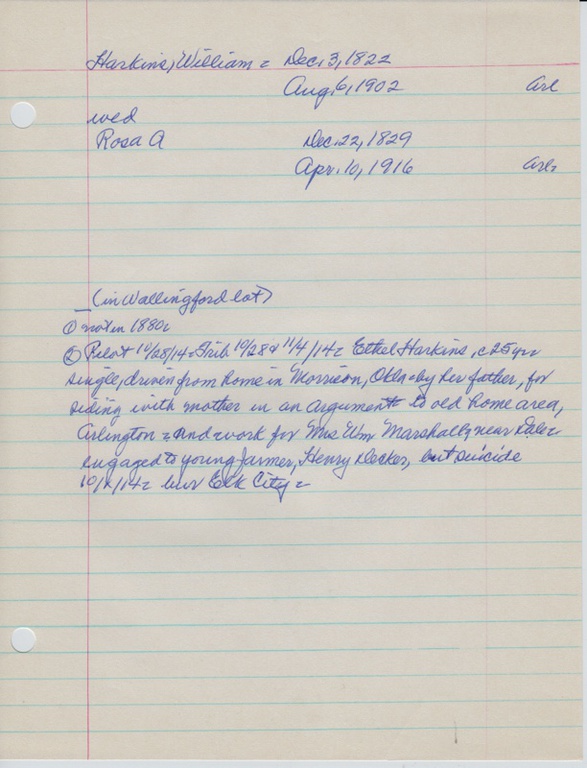 Harkins, William = Dec. 3, 1822
Aug. 6, 1902 Arl
wed
Rosa A Dec. 22, 1829
Apr. 10, 1916 Arl.
(in Wallingford lot)
① not in 1880=
② Pilot 10/28/14 = Trib 10/28 & 11/4/14 = Ethel Harkins, c 25 yrs
single, driven from home in Morrison, Okla = by her father, for
siding with mother in an argument to old home area,
Arlington = and work for Mrs Wm Marshall, near
engaged to young farmer, Henry Decker, but suicide
bur Elk City =